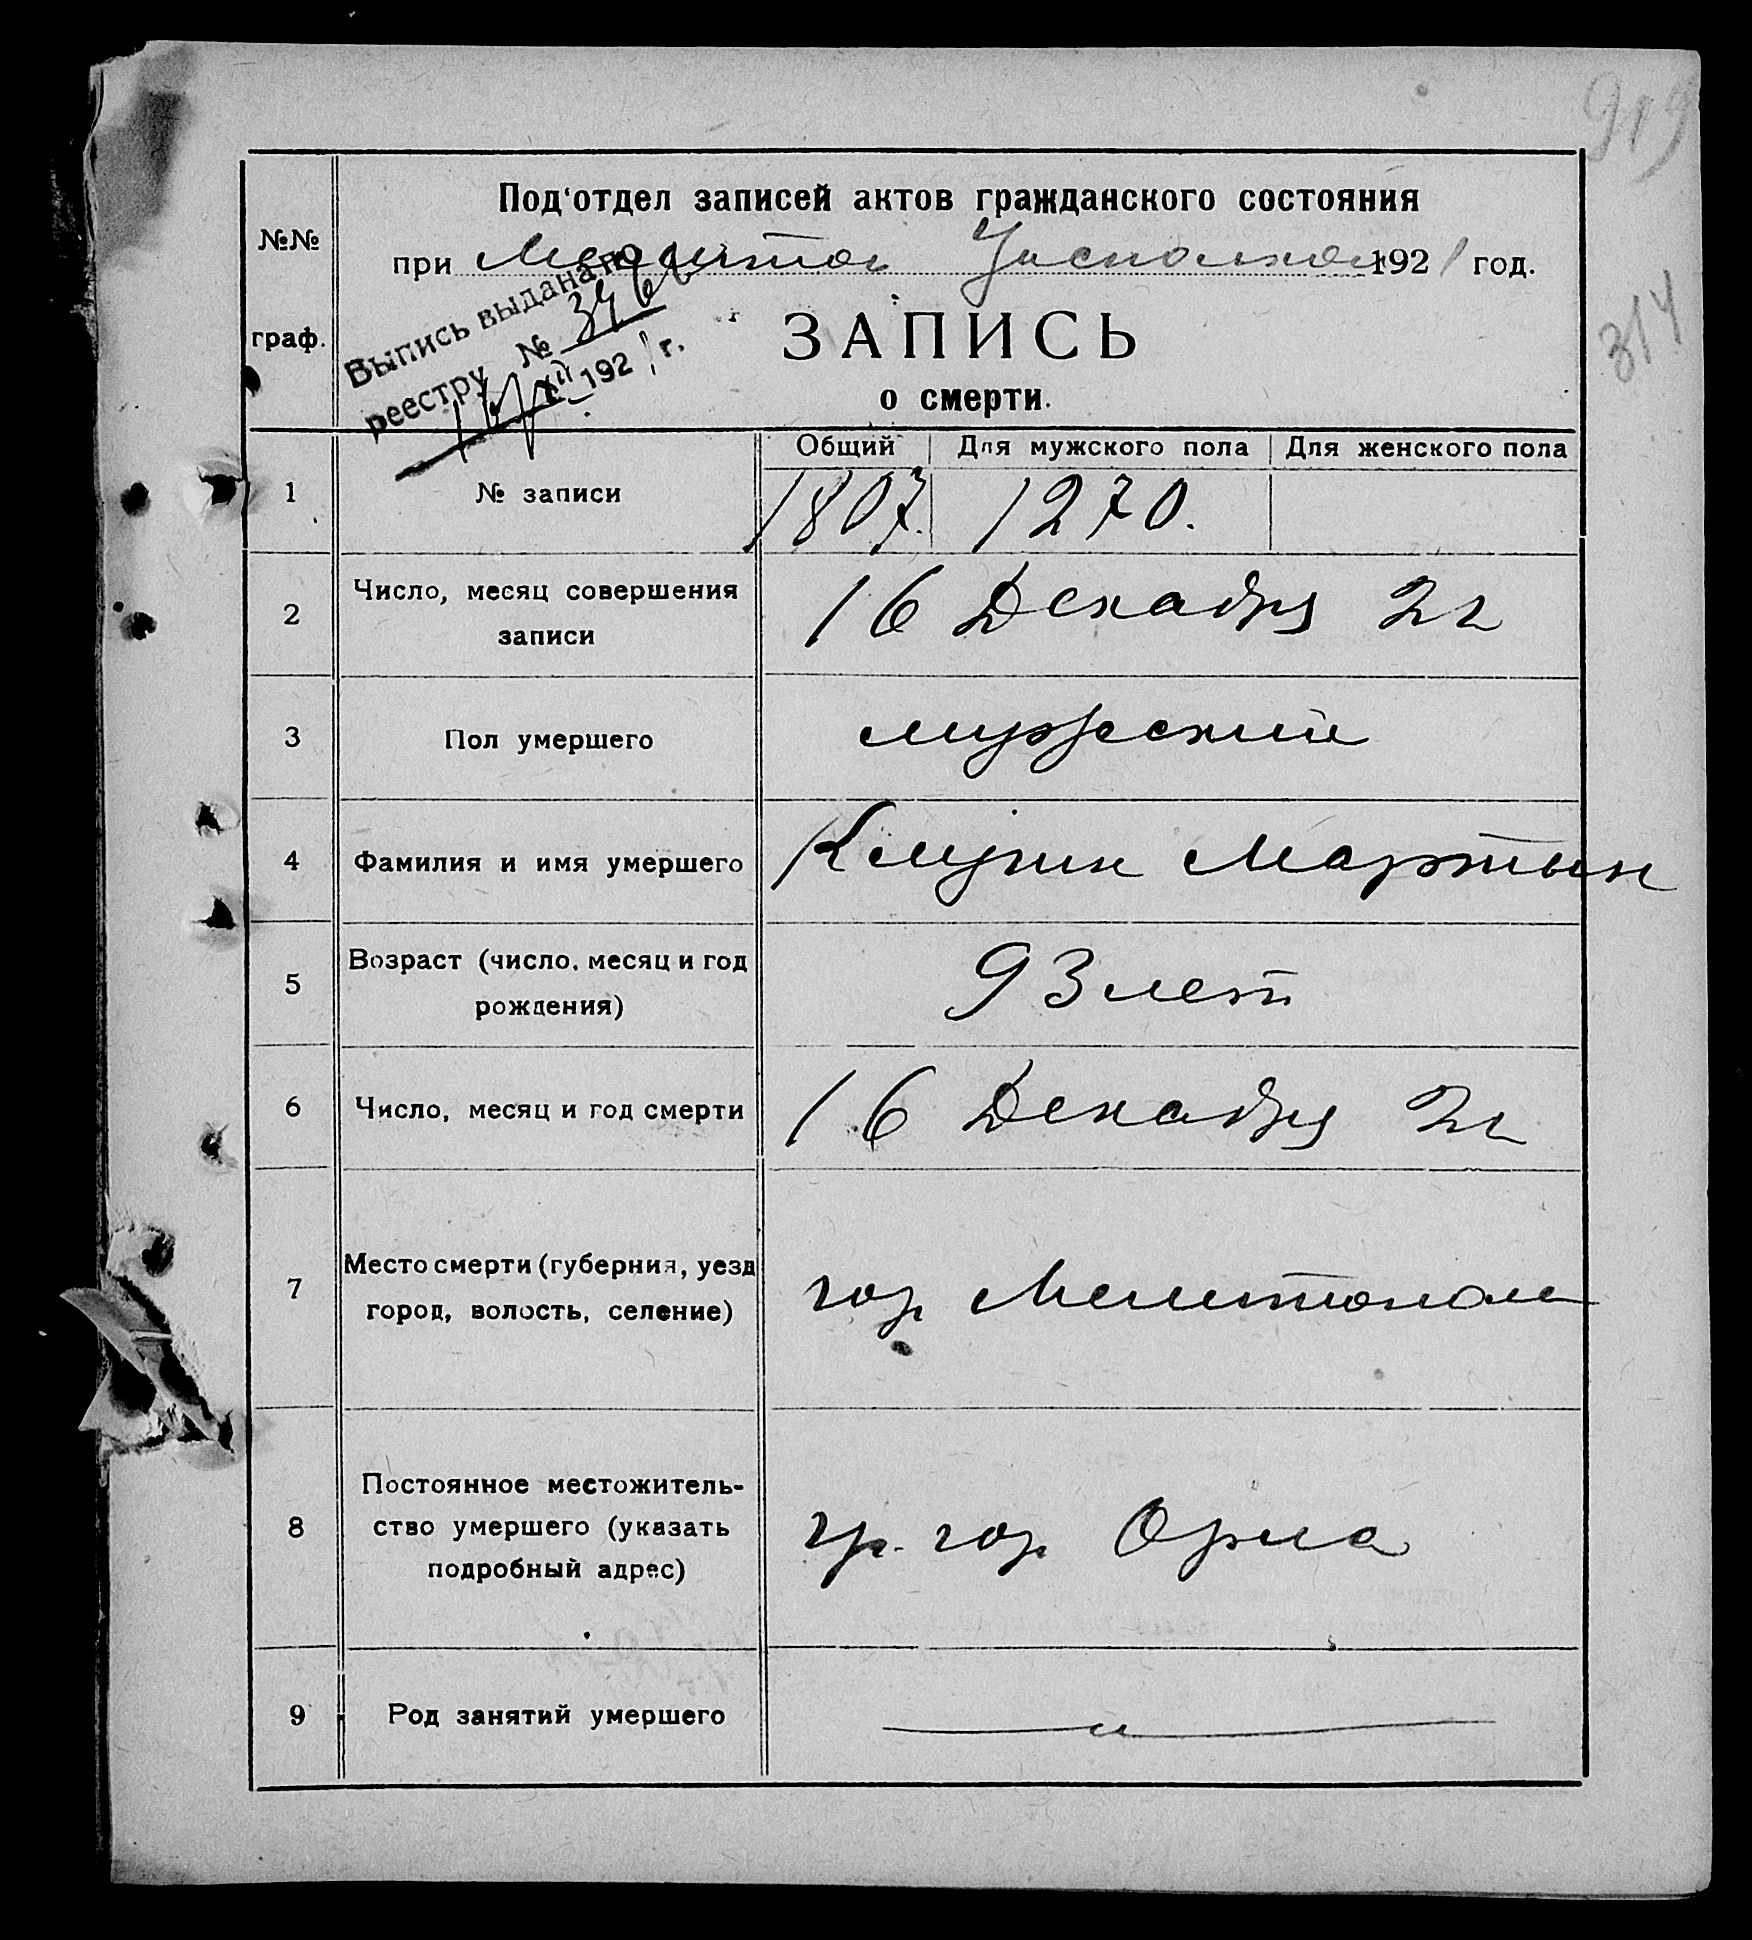 919
Под'отдел записей актов гражданского состояния
№№
при Мелитоп Исполкоме 1921 год.
314
Выпись выдана по
реестру №
16/XII 1921 г.
граф.
ЗАПИСЬ
о смерти.
Общий Для мужского пола Для женского пола
1 № записи 1807. 1270.
2 Число, месяц совершения
записи
16 Декабря 21
3 Пол умершего мужский
4 Фамилия и имя умершего Мартын
5 Возраст (число, месяц и год
рождения)
93 лет
6 Число, месяц и год смерти 16 Декабря 21
7 Место смерти (губерния, уезд
город, волость, селение)
гор Мелитополь
8 Постоянное местожитель-
ство умершего (указать
подробный адрес)
гр. гор Орла
9 Род занятий умершего